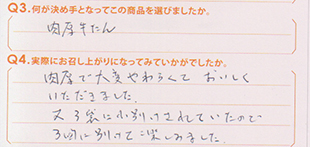 Q3.何が決め手となってこの商品を選びましたか。
肉厚牛たん
Q4.実際にお召し上がりになってみていかがでしたか。
肉厚で大変やわらくて おいしく
いただきました。
又3袋に小別けされていたので
3回に別けて楽しみました。